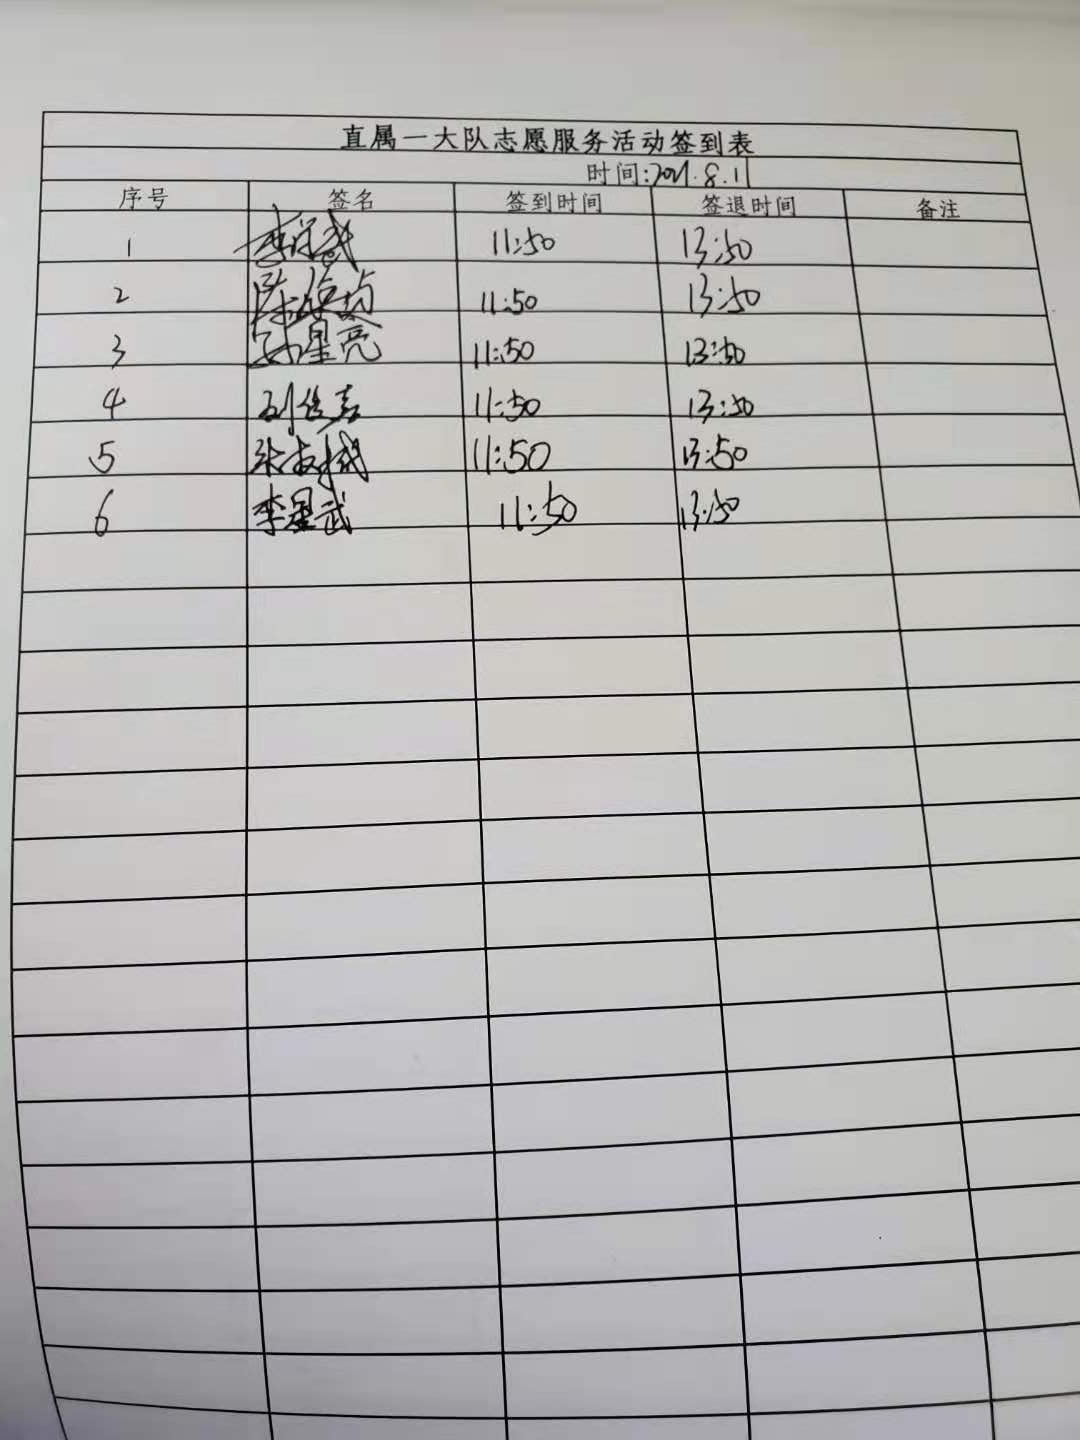 直属一大队志愿服务活动签到表
时间:2021.8.11
序号 签名 签到时间 签退时间 备注
1 11:50 13:50
2 11:50 13:50
3 孙星亮 11:50 13:50
4 刘佳嘉 11:50 13:50
5 11:50 13:50
6 李星武 11:50 13:50